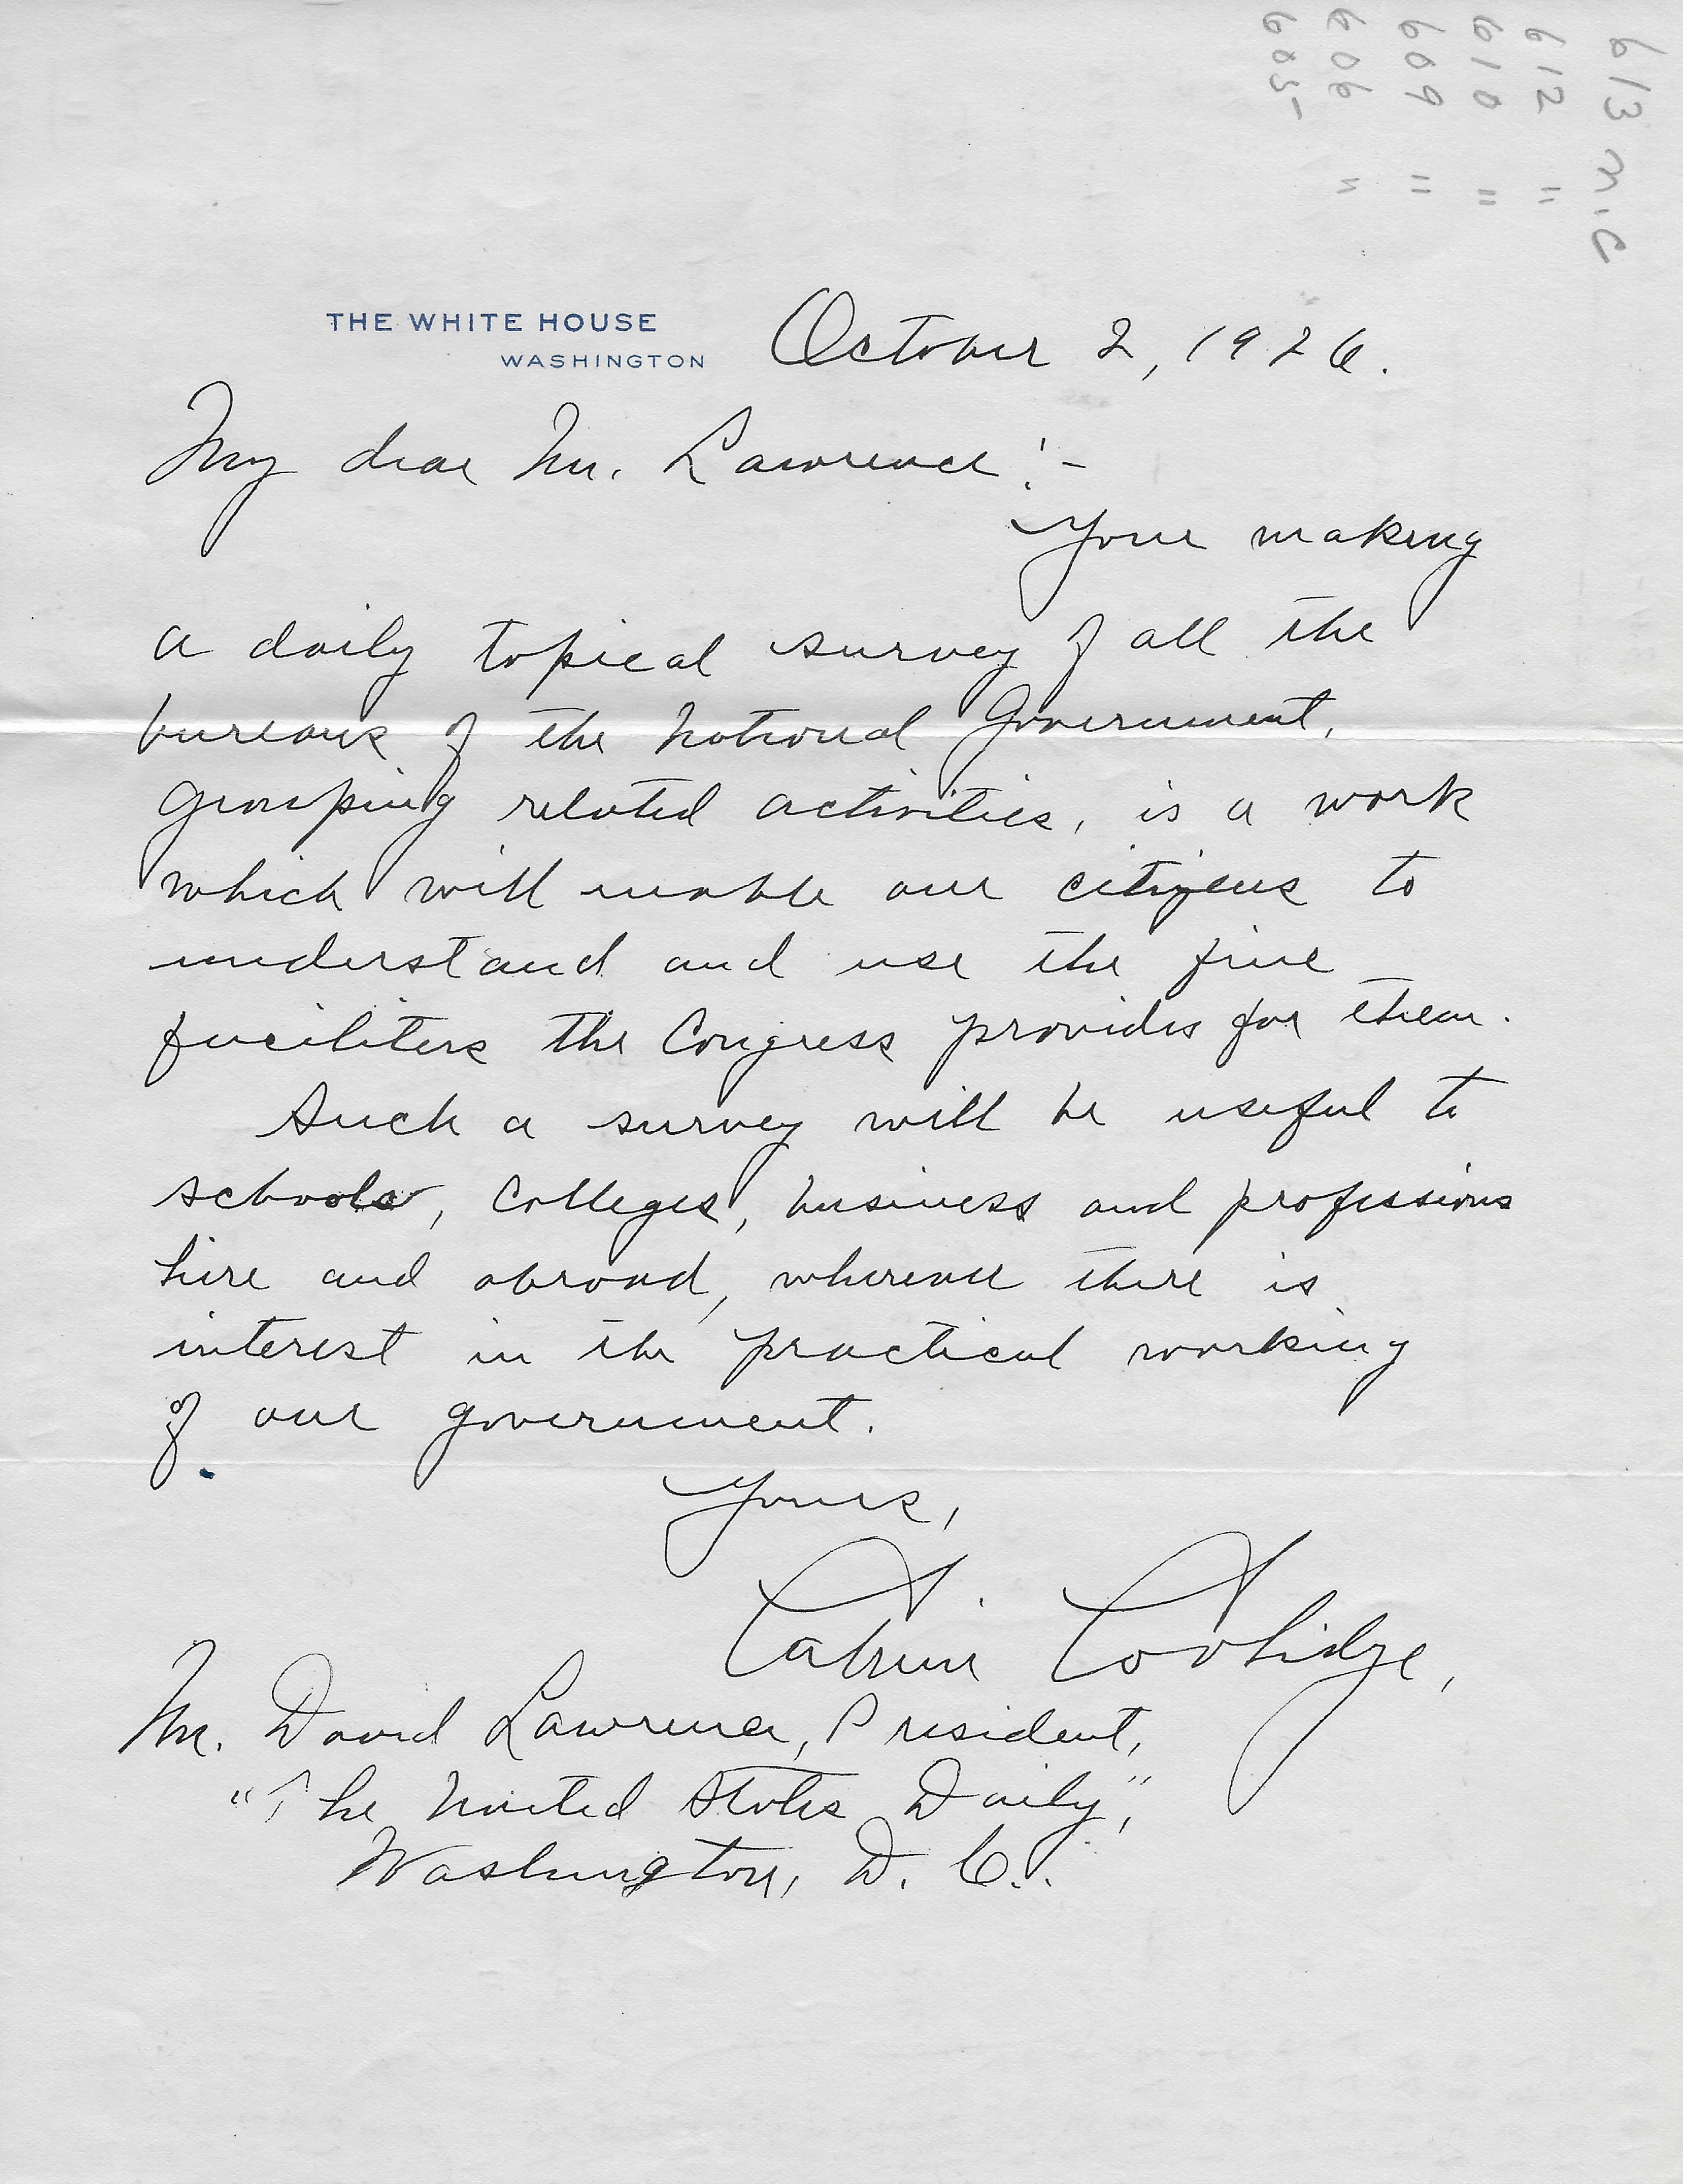 613 M.C
612 "
610 "
609 "
606 "
605
THE WHITE HOUSE
WASHINGTON
October 2, 1926.
My dear Mr. Lawrence:-
Your making
a daily topical survey of all the
bureaus of the National Government,
grouping related activities, is a work
which will enable our citizens to
understand and use the fine
facilities the Congress provides for them.
Such a survey will be useful to
schools, colleges, business and professions
here and abroad, wherever there is
interest in the practical working
of our government.
Yours,
Calvin Coolidge,
Mr. David Lawrence, President,
"The United States Daily,"
Washington, D. C.